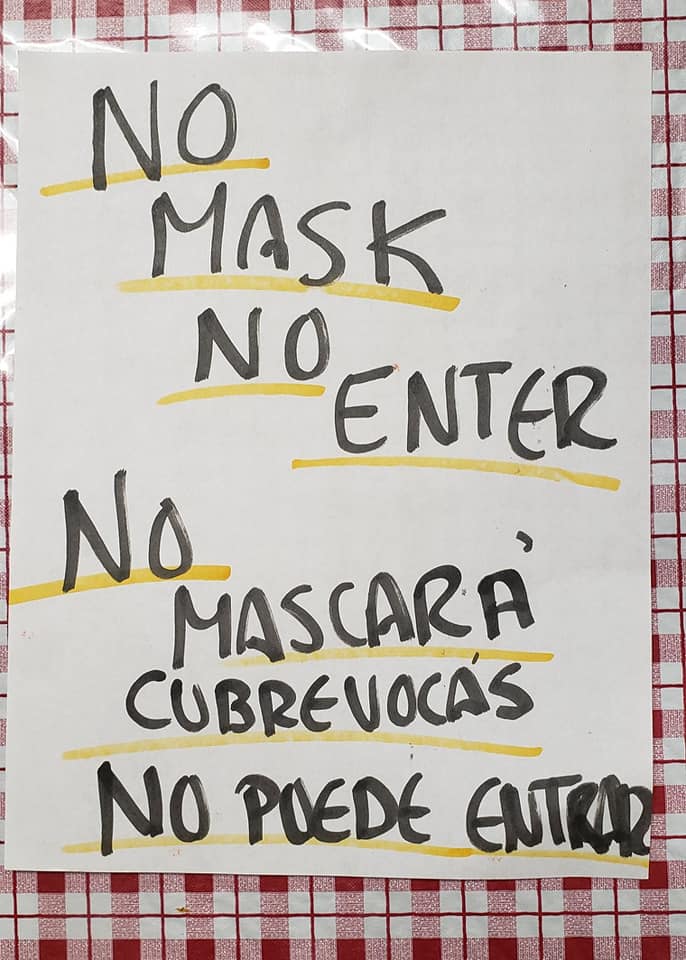 NO
MASK
NO
ENTER
NO
MASCARÁ
CUBREVOCÁS
NO PUEDE ENTRAR